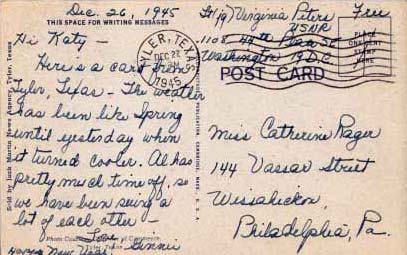 Dec. 26, 1945
THIS SPACE FOR WRITING MESSAGES
Hi Katy -
Here's a card from
Tyler, Texas - The weather
has been like Spring
until yesterday when
it turned cooler. Al has
pretty much time off, so
we have been seeing a
lot of each other -
Love
Ginnie
Happy New Year!
Lt(jg) Virginia Peters
USNR
1108 44th Place SE
Washington 19 D.C.
Free
TYLER, TEXAS
DEC 27
1945
PLACE
ONE CENT
STAMP
HERE
POST CARD
Miss Catherine Rager
144 Vassar Street
Wissahickon,
Philadelphia, Pa.
Sold by Jack Martin News Agency, Tyler, Texas
Photo Courtesy of Commerce
Tyler, Texas